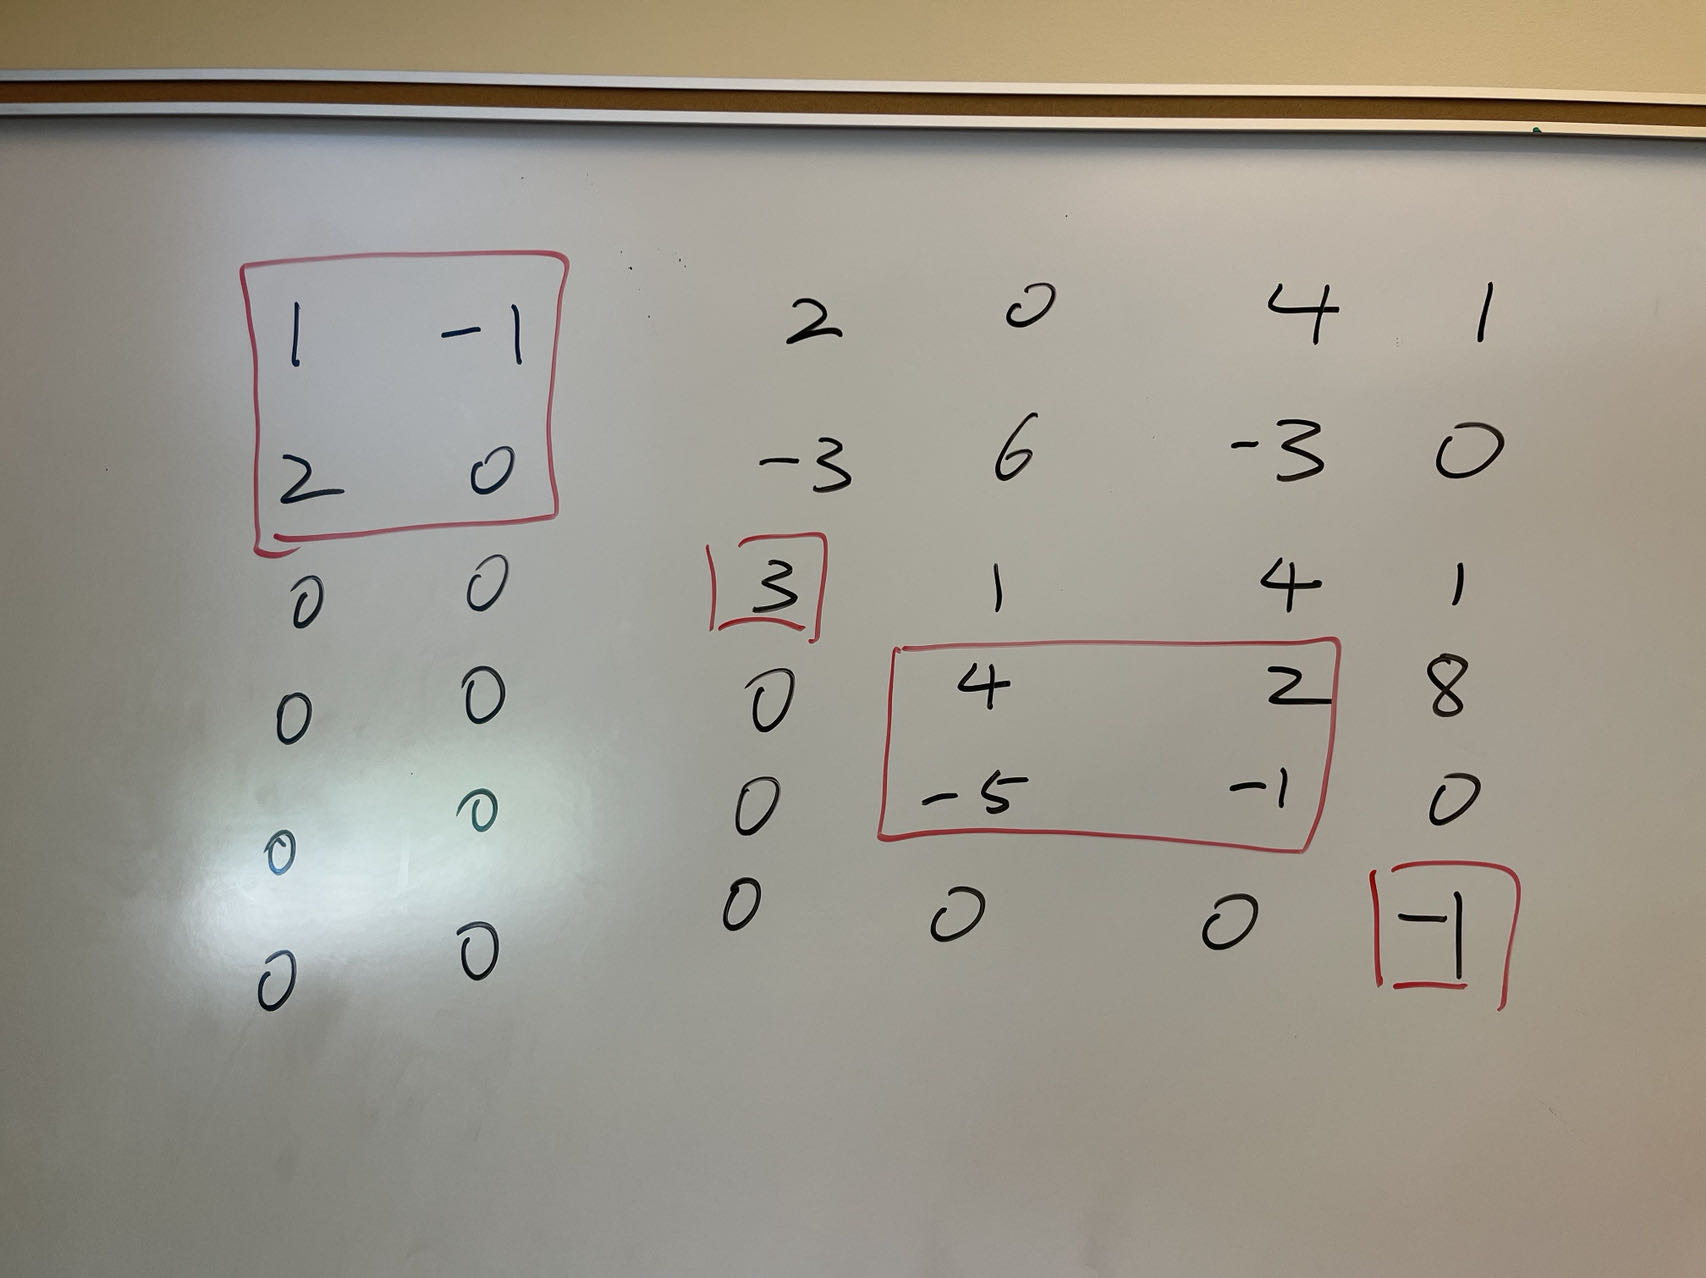 1 -1 2 0 4 1
2 0 -3 6 -3 0
0 0 3 1 4 1
0 0 0 4 2 8
0 0 0 -5 -1 0
0 0 0 0 0 -1